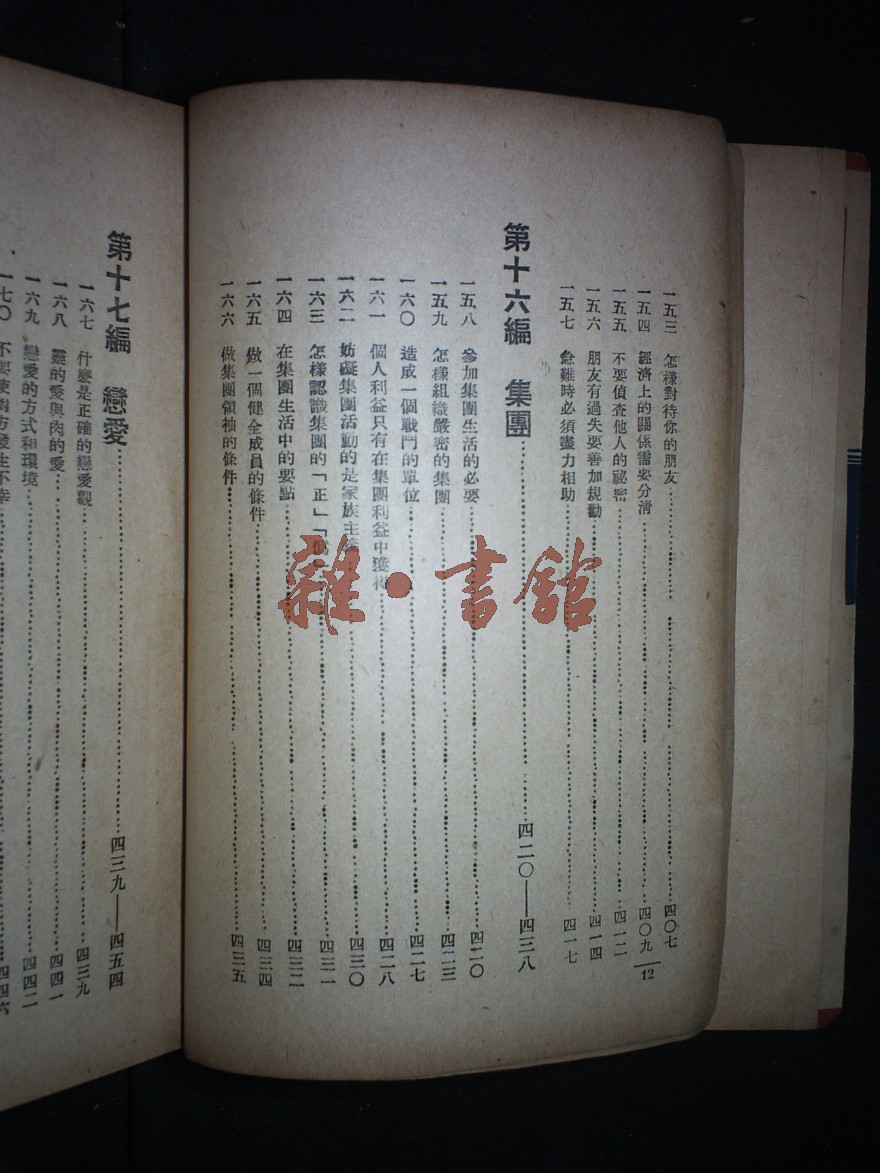 一五三　怎樣對待你的朋友……四〇七
一五四　經濟上的關係需要分清……四〇九
一五五　不要偵查他人的祕密……四一二
一五六　朋友有過失要善加規勸……四一四
一五七　急難時必須盡力相助……四一七
第十六編　集團……四二〇——四三八
一五八　參加集團生活的必要……四二〇
一五九　怎樣組織嚴密的集團……四二三
一六〇　造成一個戰鬥的單位……四二七
一六一　個人利益只有在集團利益中獲得……四二八
一六二　妨礙集團活動的是家族主義……四三〇
一六三　怎樣認識集團的「正」「　……四三一
一六四　在集團生活中的要點……四三二
一六五　做一個健全成員的條件……四三四
一六六　做集團領袖的條件……四三五
12
第十七編　戀愛……四三九——四五四
一六七　什麼是正確的戀愛觀……四三九
一六八　靈的愛與肉的愛……四四一
一六九　戀愛的方式和環境……四四二
一七〇　不要使對方發生不幸……四四六
雜·書館